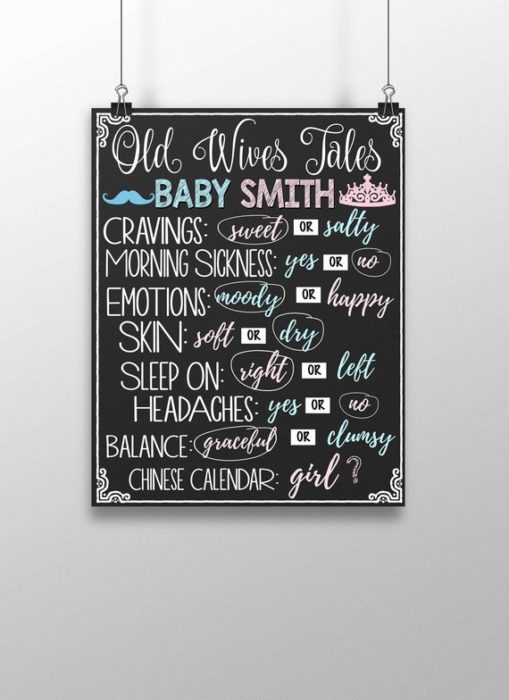 Old Wives Tales
BABY SMITH
CRAVINGS: sweet OR salty
MORNING SICKNESS: yes OR no
EMOTIONS: moody OR happy
SKIN: soft OR dry
SLEEP ON: right OR left
HEADACHES: yes OR no
BALANCE: graceful OR clumsy
CHINESE CALENDAR: girl ?